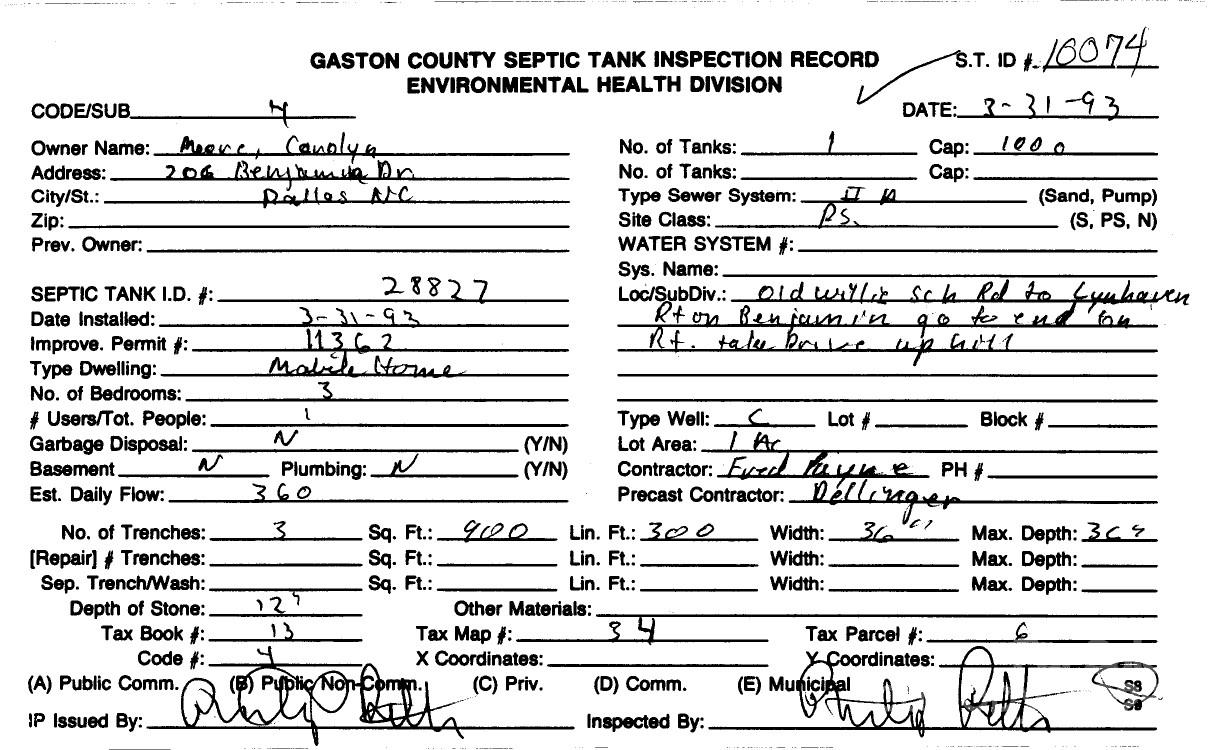 GASTON COUNTY SEPTIC TANK INSPECTION RECORD S.T. ID #. 10074
ENVIRONMENTAL HEALTH DIVISION
CODE/SUB 4 DATE: 3-31-93
Owner Name: Moore, Carolyn
Address: 206 Benjamin Dr.
City/St.: Dallas NC
Zip:
Prev. Owner:
SEPTIC TANK I.D. #: 28827
Date Installed: 3-31-93
Improve. Permit #: 11362
Type Dwelling: Mobile Home
No. of Bedrooms: 3
# Users/Tot. People: 1
Garbage Disposal: N (Y/N)
Basement N Plumbing: N (Y/N)
Est. Daily Flow: 360
No. of Tanks: 1 Cap: 1000
No. of Tanks: Cap:
Type Sewer System: II A (Sand, Pump)
Site Class: P.S. (S, PS, N)
WATER SYSTEM #:
Sys. Name:
Loc/SubDiv.: Old Wyllie Sch Rd to Lynhaven
Rt on Benjamin go to end on
Rt. take Drive up hill
Type Well: C Lot # Block #
Lot Area: 1 Ac
Contractor: Fred Payne PH #
Precast Contractor: Dellinger
No. of Trenches: 3 Sq. Ft.: 900 Lin. Ft.: 300 Width: 36" Max. Depth: 36"
[Repair] # Trenches: Sq. Ft.: Lin. Ft.: Width: Max. Depth:
Sep. Trench/Wash: Sq. Ft.: Lin. Ft.: Width: Max. Depth:
Depth of Stone: 12" Other Materials:
Tax Book #: 13 Tax Map #: 34 Tax Parcel #: 6
Code #: 4 X Coordinates: Y Coordinates:
(A) Public Comm. (B) Public Non-Comm. (C) Priv. (D) Comm. (E) Municipal S8
S9
IP Issued By: Philip Inspected By: Philip